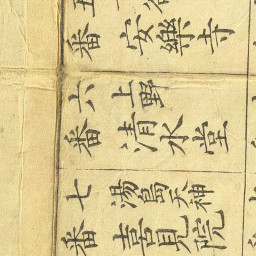 番
安樂寺
六番
上野
清水堂
七番
湯島天神
喜見院